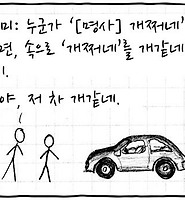 미: 누군가 '[명사] 개쩌네'
면, 속으로 '개쩌네'를 개같네
야, 저 차 개같네.